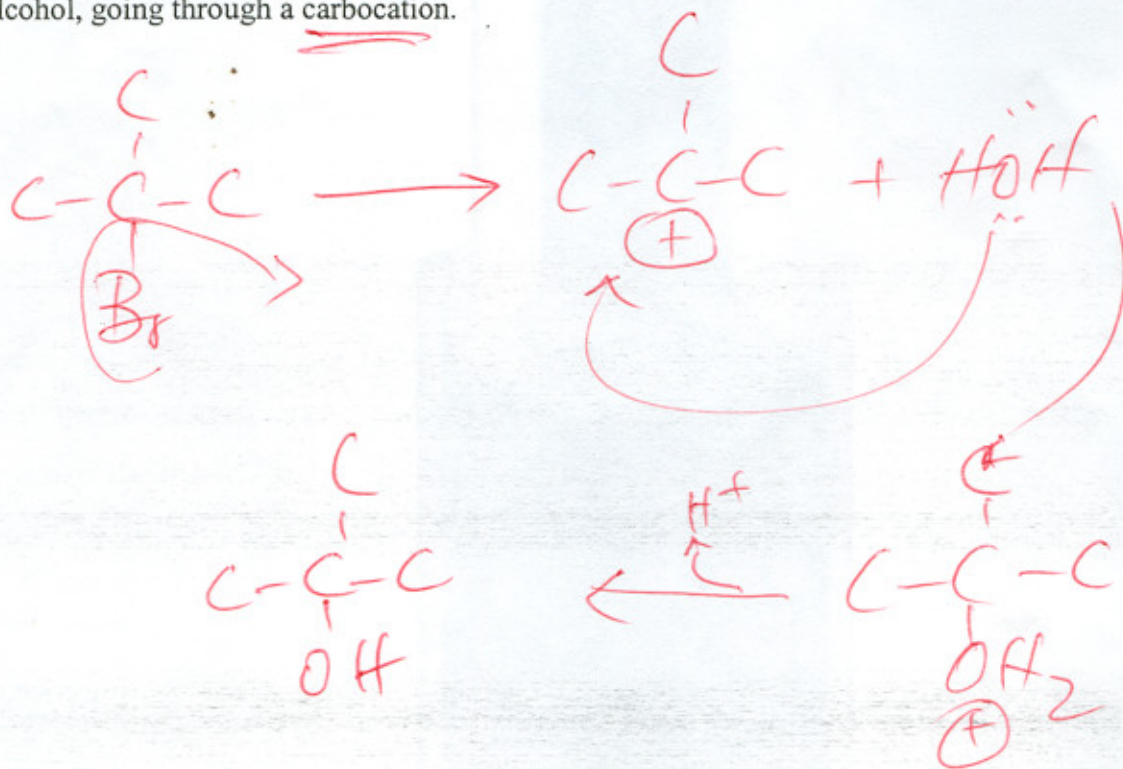 lcohol, going through a carbocation.
C C
C-C-C → C-C-C + HÖH
Br +
C C
H+
C-C-C ← C-C-C
OH OH2
+